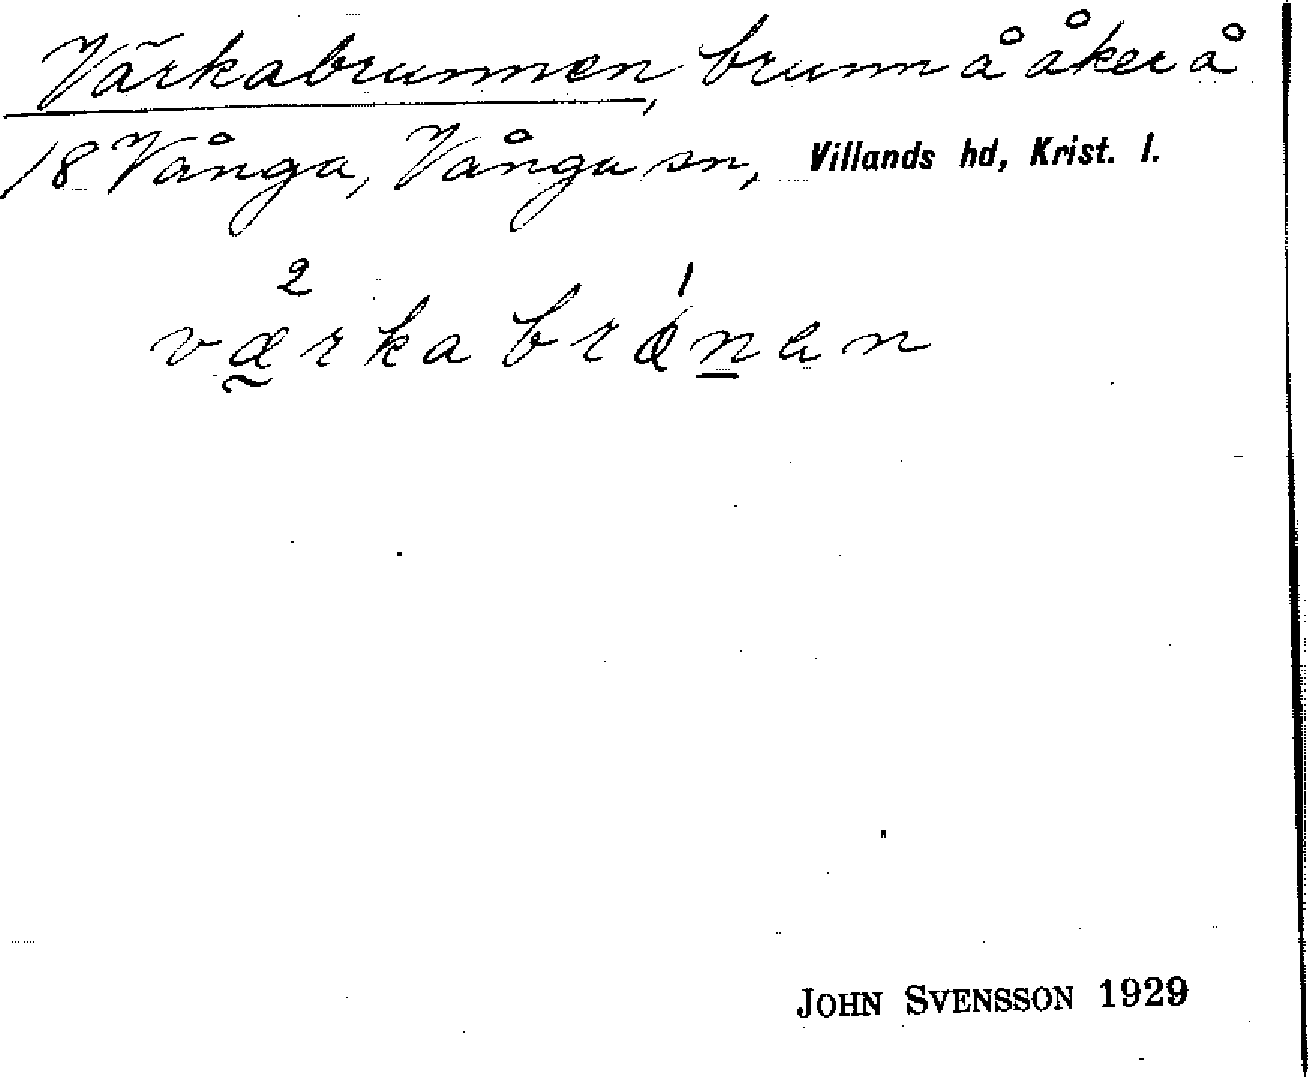 Värkabrunnen, brunn å åker å
18 Vånga, Vånga sn, Villands hd, Krist. l.
2 1
værkabrånen
JOHN SVENSSON 1929